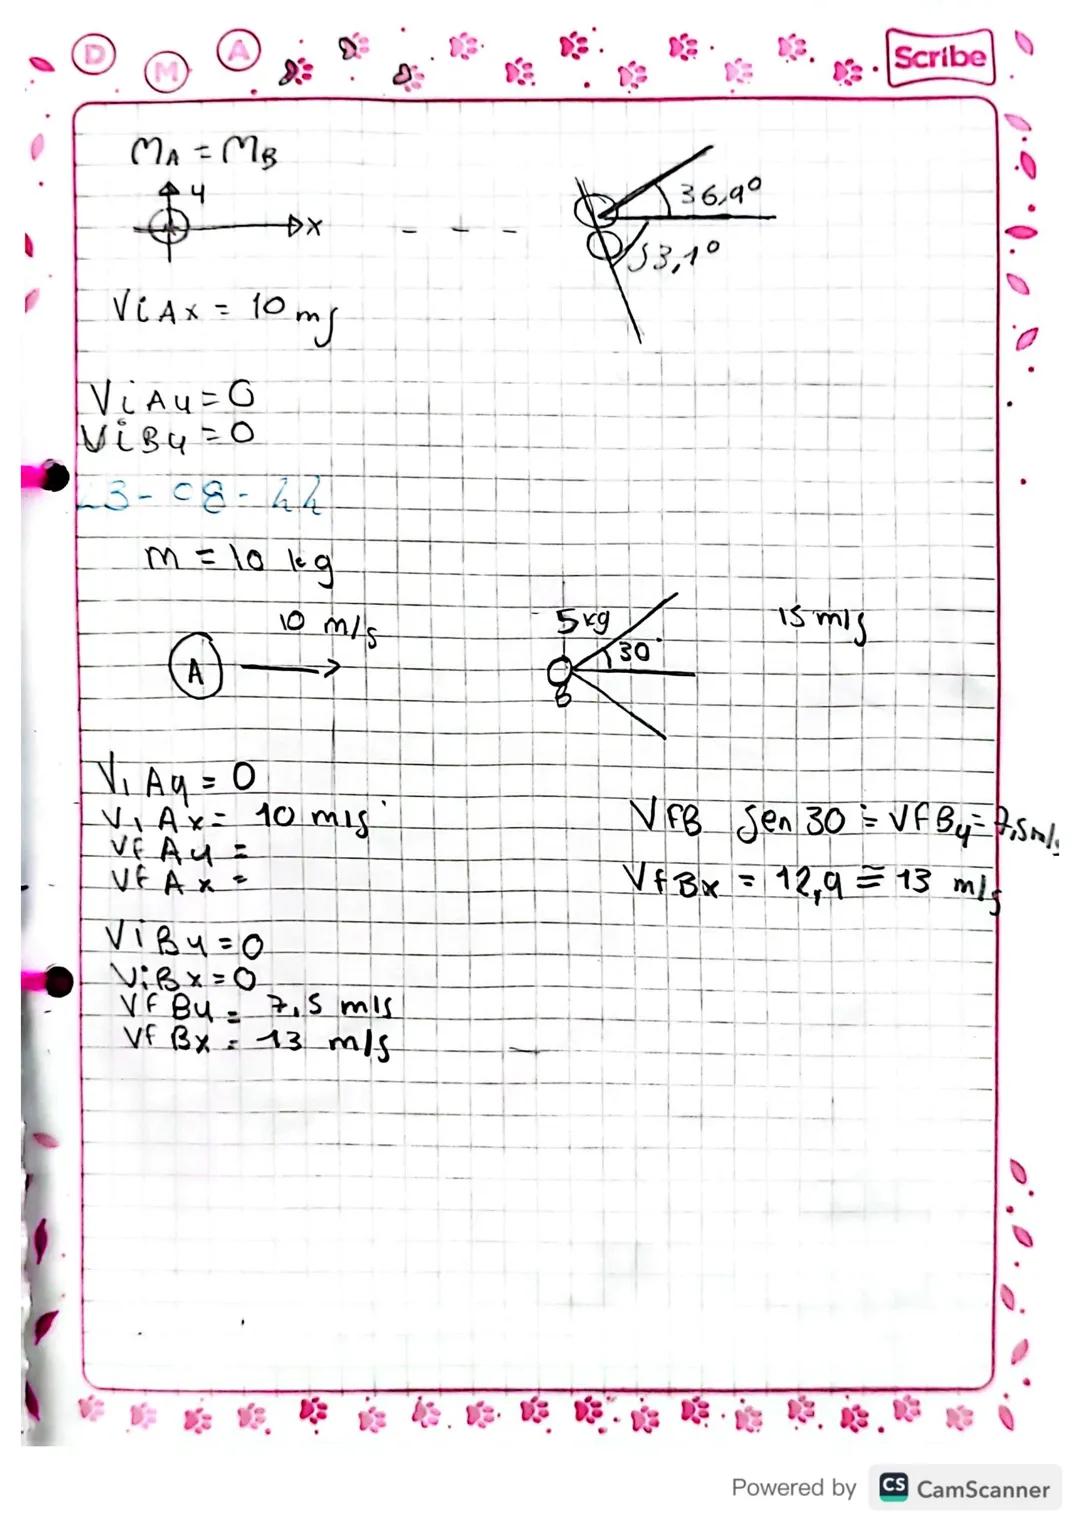 D M A
Scribe
MA = MB
y
x
36,9°
53,1°
ViAx = 10 m/s
ViAy = 0
ViBy = 0
23-08-22
m = 10 kg
10 m/s
5 kg
15 m/s
A
30°
B
V, Ay = 0
V, Ax = 10 m/s
Vf Ay =
Vf Ax =
VfB Sen 30 = VfBy = 7,5 m/s
VfBx = 12,9 ≅ 13 m/s
ViBy = 0
ViBx = 0
Vf By = 7,5 m/s
Vf Bx = 13 m/s
Powered by CS CamScanner